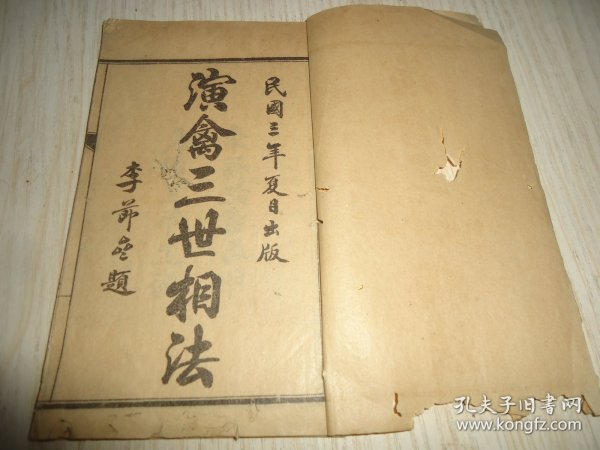 民國三年夏日出版
演禽三世相法
李節齋題
孔夫子旧书网
www.kongfz.com